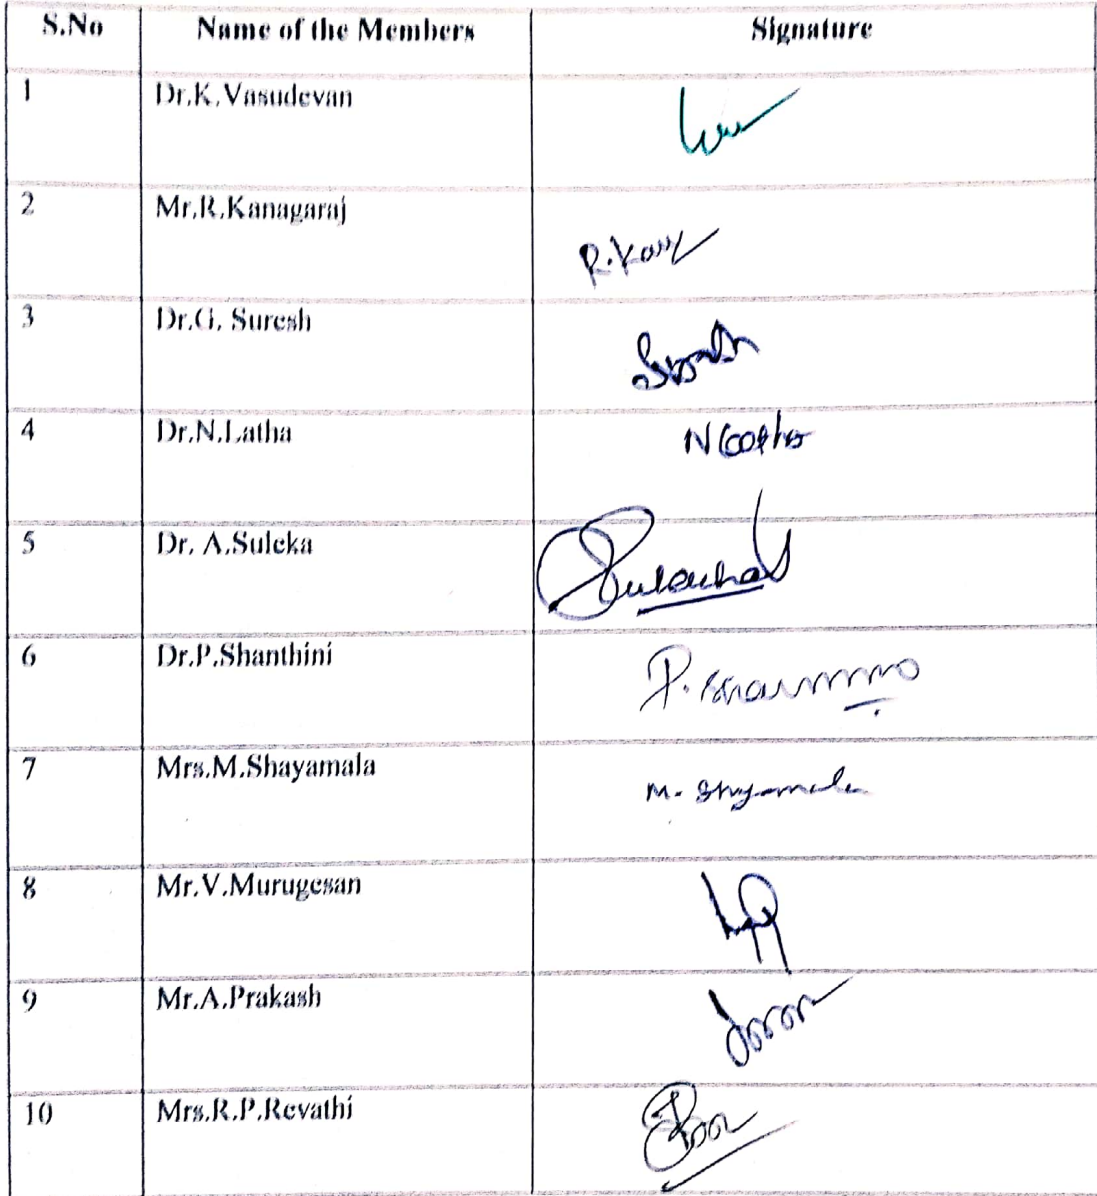 S.No Name of the Members Signature
1 Dr.K.Vasudevan
2 Mr.R.Kanagaraj
R.Kan
3 Dr.G. Suresh
4 Dr.N.Latha N Latha
5 Dr. A.Suleka
6 Dr.P.Shanthini
7 Mrs.M.Shayamala
M. Shyamala
8 Mr.V.Murugesan
9 Mr.A.Prakash
10 Mrs.R.P.Revathi